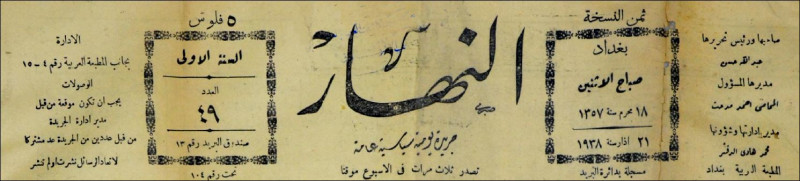 ثمن النسخة
٥ فلوس
صاحبها ورئيس تحريرها
عبدالله حسن
مديرها المسؤول
المحامي احمد مدحت
مدير ادارتها وشؤونها
محمد هادي الدفتر
المطبعة العربية بغداد
بغداد
صباح الاثنين
١٨ محرم سنة ١٣٥٧
٢١ اذار سنة ١٩٣٨
مسجلة بدائرة البريد
النهار
جريدة يومية سياسية عامة
تصدر ثلاث مرات في الاسبوع موقتا
السنة الاولى
العدد
٤٩
صندوق البريد رقم ١٣
تحت رقم ١٠٤
الادارة
بجانب المطبعة العربية رقم ٤ - ١٥
الوصولات
يجب ان تكون موقعة من قبل
مدير ادارة الجريدة
من قبل عددين من الجريدة عد مشتركا
لا تعاد الرسائل نشرت او لم تنشر